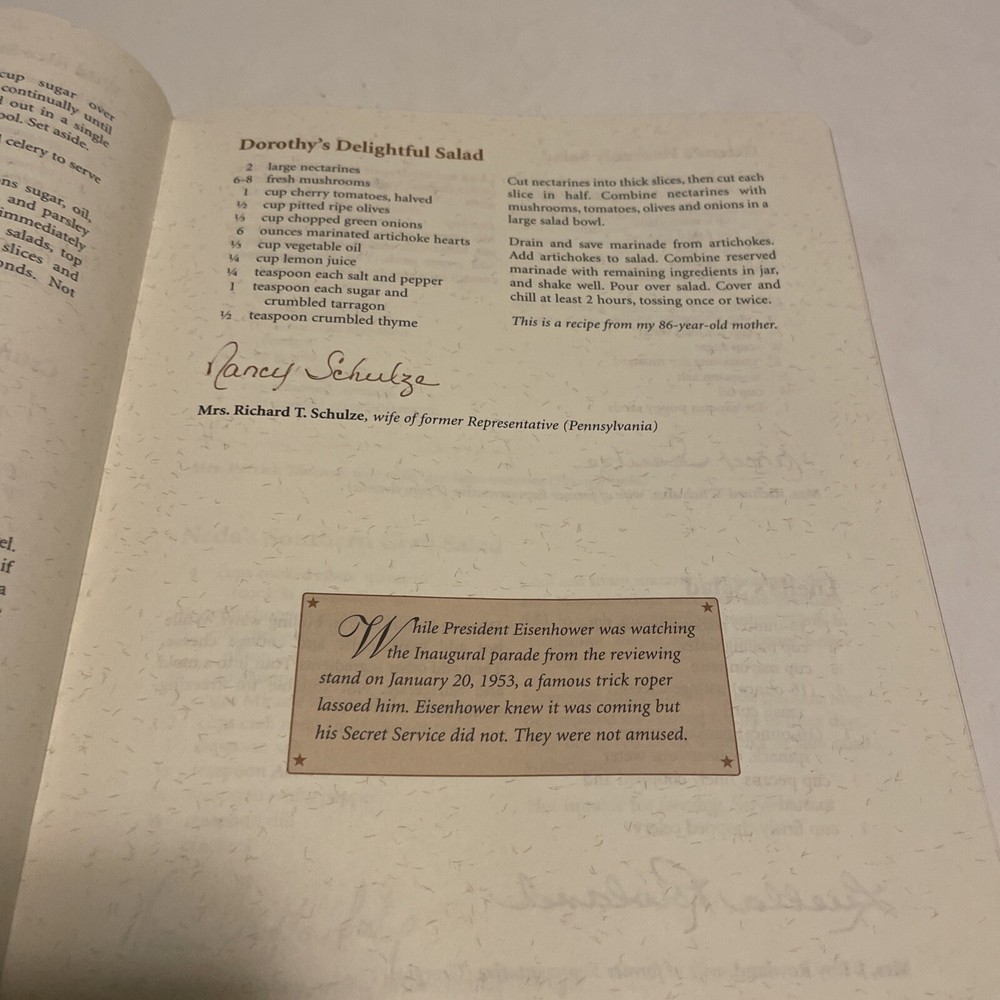 cup sugar over
continually until
out in a single
ool. Set aside.
celery to serve
ns sugar, oil,
and parsley
immediately
salads, top
slices and
onds. Not
el.
if
a
Dorothy's Delightful Salad
2 large nectarines
6-8 fresh mushrooms
1 cup cherry tomatoes, halved
½ cup pitted ripe olives
⅓ cup chopped green onions
6 ounces marinated artichoke hearts
⅓ cup vegetable oil
¼ cup lemon juice
¼ teaspoon each salt and pepper
1 teaspoon each sugar and
crumbled tarragon
½ teaspoon crumbled thyme
Cut nectarines into thick slices, then cut each
slice in half. Combine nectarines with
mushrooms, tomatoes, olives and onions in a
large salad bowl.
Drain and save marinade from artichokes.
Add artichokes to salad. Combine reserved
marinade with remaining ingredients in jar,
and shake well. Pour over salad. Cover and
chill at least 2 hours, tossing once or twice.
This is a recipe from my 86-year-old mother.
Nancy Schulze
Mrs. Richard T. Schulze, wife of former Representative (Pennsylvania)
While President Eisenhower was watching
the Inaugural parade from the reviewing
stand on January 20, 1953, a famous trick roper
lassoed him. Eisenhower knew it was coming but
his Secret Service did not. They were not amused.